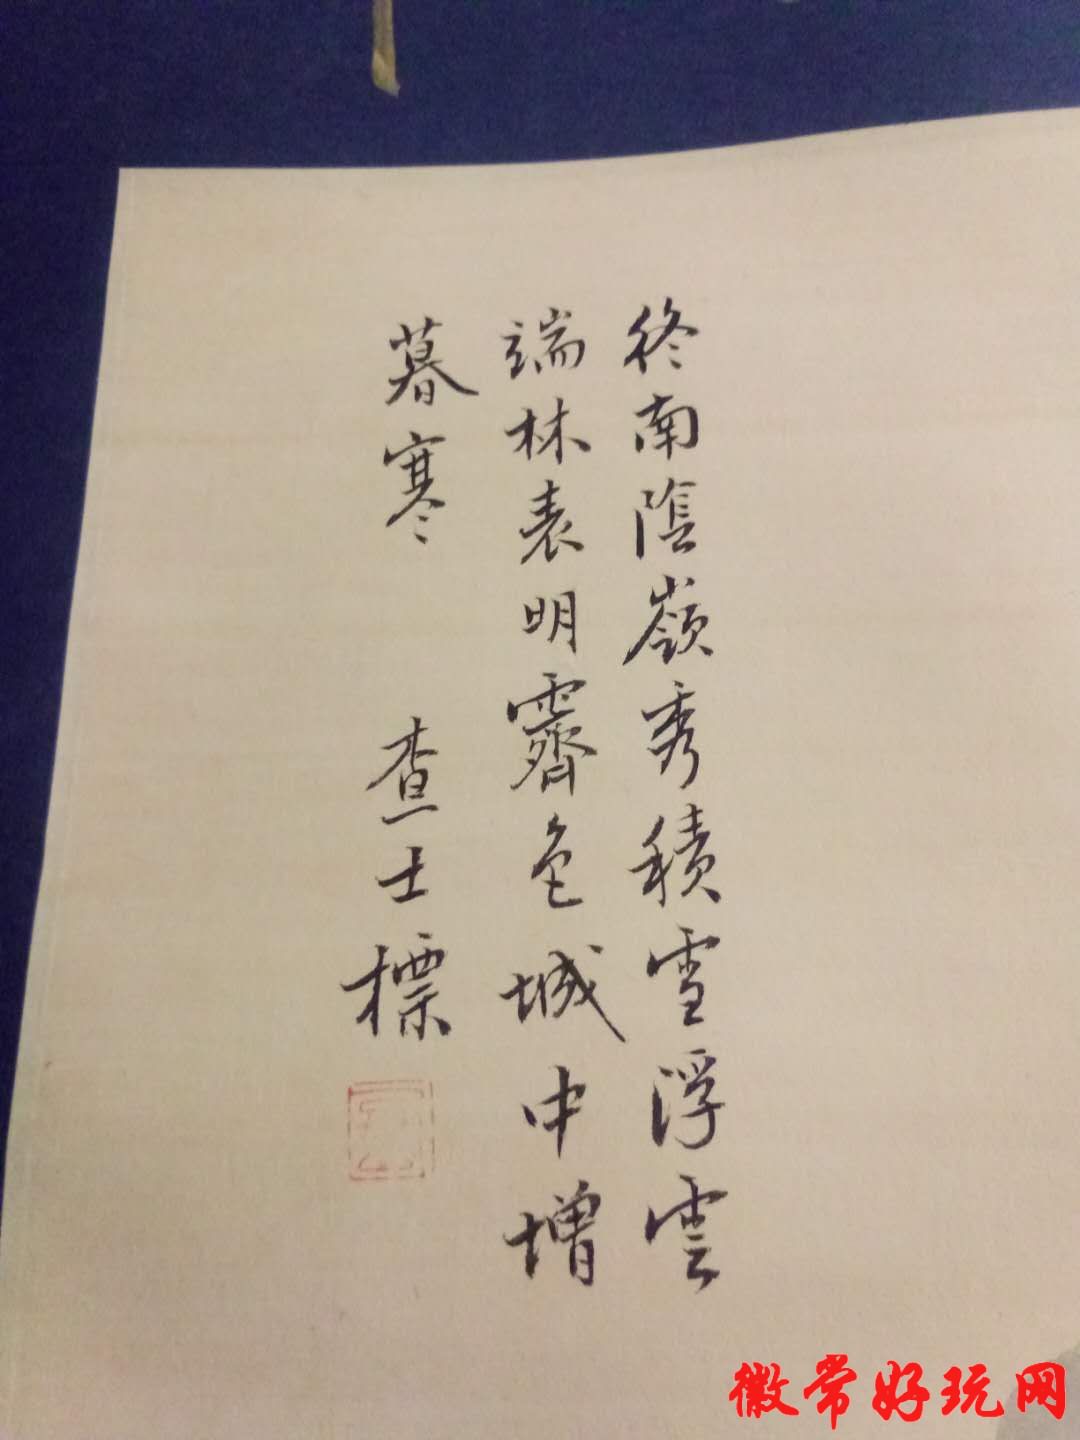 終南陰嶺秀積雪浮雲
端林表明霽色城中增
暮寒 查士標
徽常好玩网